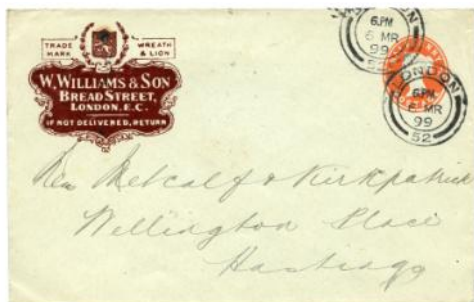 TRADE MARK
WREATH & LION
W. WILLIAMS & SON
BREAD STREET,
LONDON, E.C.
IF NOT DELIVERED, RETURN
LONDON
6.PM
6 MR
99
52
LONDON
6.PM
6 MR
99
52
Metcalf & Kirkpatrick
Wellington Place
Hastings